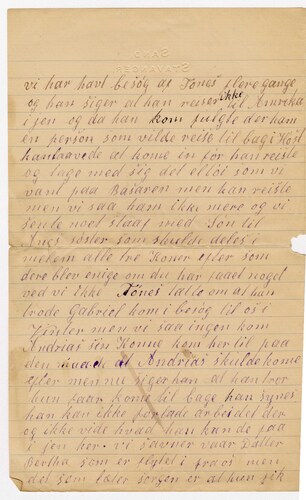 SAND
STAVANGER
vi har havt besøg af Tönes flere gange
og han siger at han reiser ikke til Amreka
i jen og da han kom fulgte der ham
en person som vilde reise til bage i Høst
han lavede at kome in før han reiste
og tage med sig det eller som vi
vant paa Basaren men han reiste
men vi saa ham ikke mere og vi
sente noet staaf med Søn til
Ines söster som skulde deles i
melem alle tre Koner efter som
dere blev enige om du har faaet noget
ved vi ikke Tönes talte om at han
trode Gabriel kom i besög til os i
Vinter men vi saa ingen kom
Andrias sin Konne kom her til paa
den maade at Andrias skulde kome
efter men nu siger han at han tror
hun faar kome til bage han synes
han kan ikke forlade arbeidet der
og ikke vide hvad han kan de faa
i jen her. vi savner vaar Datter
Bertha som er flytet i fra os men
det som letter sorgen er at hun fik